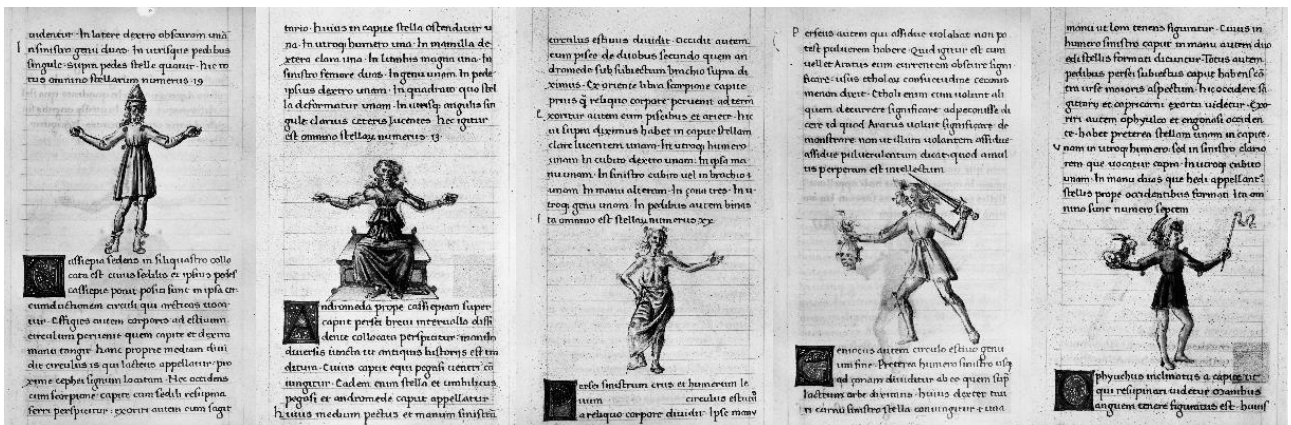 uidentur. In latere dextro obscuram unā
In sinistro genu duas. In utrisque pedibus
singule. supra pedes stelle quatuor. hic to
tus omnino stellarum numerus. 19
Cassiepia sedens in siliquastro collo
cata est cuius sedilis et ipsius
cassiepie posita sunt in ipsa cir
cumductionem circuli qui arcticus uoca
tur. Effigies autem corporis ad estiuum
circulum peruenit quem capite et dextra
manu tangit. hanc prope mediam diui
dit circulus is qui lacteus appellatur. pro
xime cephei signum locatam. Hec occidens
cum scorpione. capite cum sedili resupina
ferri perspicitur. exoriri autem cum sagit
tario. huius in capite stella ostenditur u
na. In utroq; humero una. In mamilla de
xtera clara una. In lumbis magna una. In
sinistro femore duas. In genu unam. In pede
ipsius dextro unam. In quadrato quo stel
la deformatur unam. In utrisq; angulis sin
gule clarius ceteris lucentes. hec igitur
est omnino stellaꝝ numerus. 13.
Andromeda prope cassiepiam super
caput persei breui interuallo dissi
dente collocata perspicitur. manibꝰ
diuersis uincta ut antiquis historijs est tra
ditum. Cuius caput equi pegasi uentri cō
iungitur. Eadem enim stella et umbilicus
pegasi et andromede caput appellatur.
huius medium pectus et manum sinistrā
circulus estiuus diuidit. Occidit autem
cum pisce de duobus secundo quem an
dromede sub subiectum brachio supra di
ximus. Exoriente libra scorpione capite
prius q̄ reliquo corpore peruenit ad terrā
Exoritur autem cum piscibus et ariete. hic
ut supra diximus habet in capite stellam
clare lucentem unam. In utroq; humero
unam. In cubito dextro unam. In ipsa ma
nu unam. In sinistro cubito uel in brachio .i.
unam. In manu alteram. In zona tres. In u
troq; genu unam. In pedibus autem binas
Ita omnino est stellaꝝ numerus xx
Persei sinistrum crus et humerum le
uum circulus estiuꝰ
a reliquo corpore diuidit. Ipse manu
Perseus autem qui assidue uolabat non po
test puluerem habere. Quid igitur est cum
uellet Aratus eum currentem obscure signi
ficare. usus etholay consuetudine
menon dixit. Etholi enim cum uolunt ali
quem decurrere significare
id quod Aratus uoluit significare. de
monstrare non ut illum uolantem assidue
assidue puluerulentum dicat. quod a mul
tis perperam est intellectum
autem circulo estiuo genu
um fine. Preterea humero sinistro usq;
ad zonam diuiditur ab eo quem sup
lactium orbe diximus. huius dexter tau
ri cornu sinistro stella coniungitur. et una
manu ut lom tenens figuratur. Cuius in
humero sinistro capra in manu autem duo
edi stellis formati dicuntur. Totus autem
pedibus persei subiectus caput habens cō
tra urse maioris aspectum. hic occidere sa
gittario et capricorni exortu uidetur. Exo
riri autem ophyulco et engonasi occiden
te. habet preterea stellam unam in capite.
unam in utroq; humero. sed in sinistro clario
rem que uocatur capra. In utroq; cubito
unam. In manu duas que hedi appellantᵉ
stellis prope occidentibus formati. Ita om
nino sunt numero septem
Ophyuchus inclinatus a capite ut
qui resupinari uidetur manibus
anguem tenere figuratus est. huius